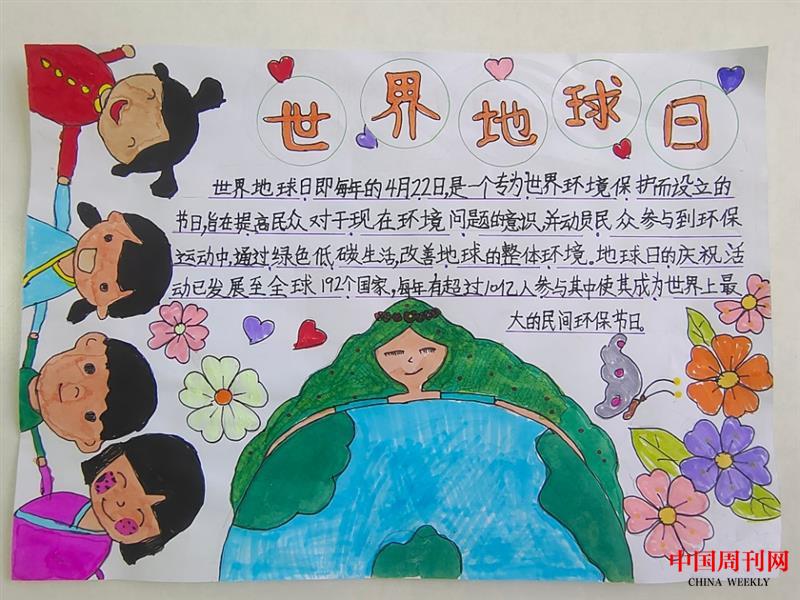 世界地球日
世界地球日即每年的4月22日,是一个专为世界环境保护而设立的
节日,旨在提高民众对于现在环境问题的意识,并动员民众参与到环保
运动中,通过绿色低碳生活,改善地球的整体环境。地球日的庆祝活
动已发展至全球192个国家,每年有超过10亿人参与其中使其成为世界上最
大的民间环保节日。
中国周刊网
CHINA WEEKLY